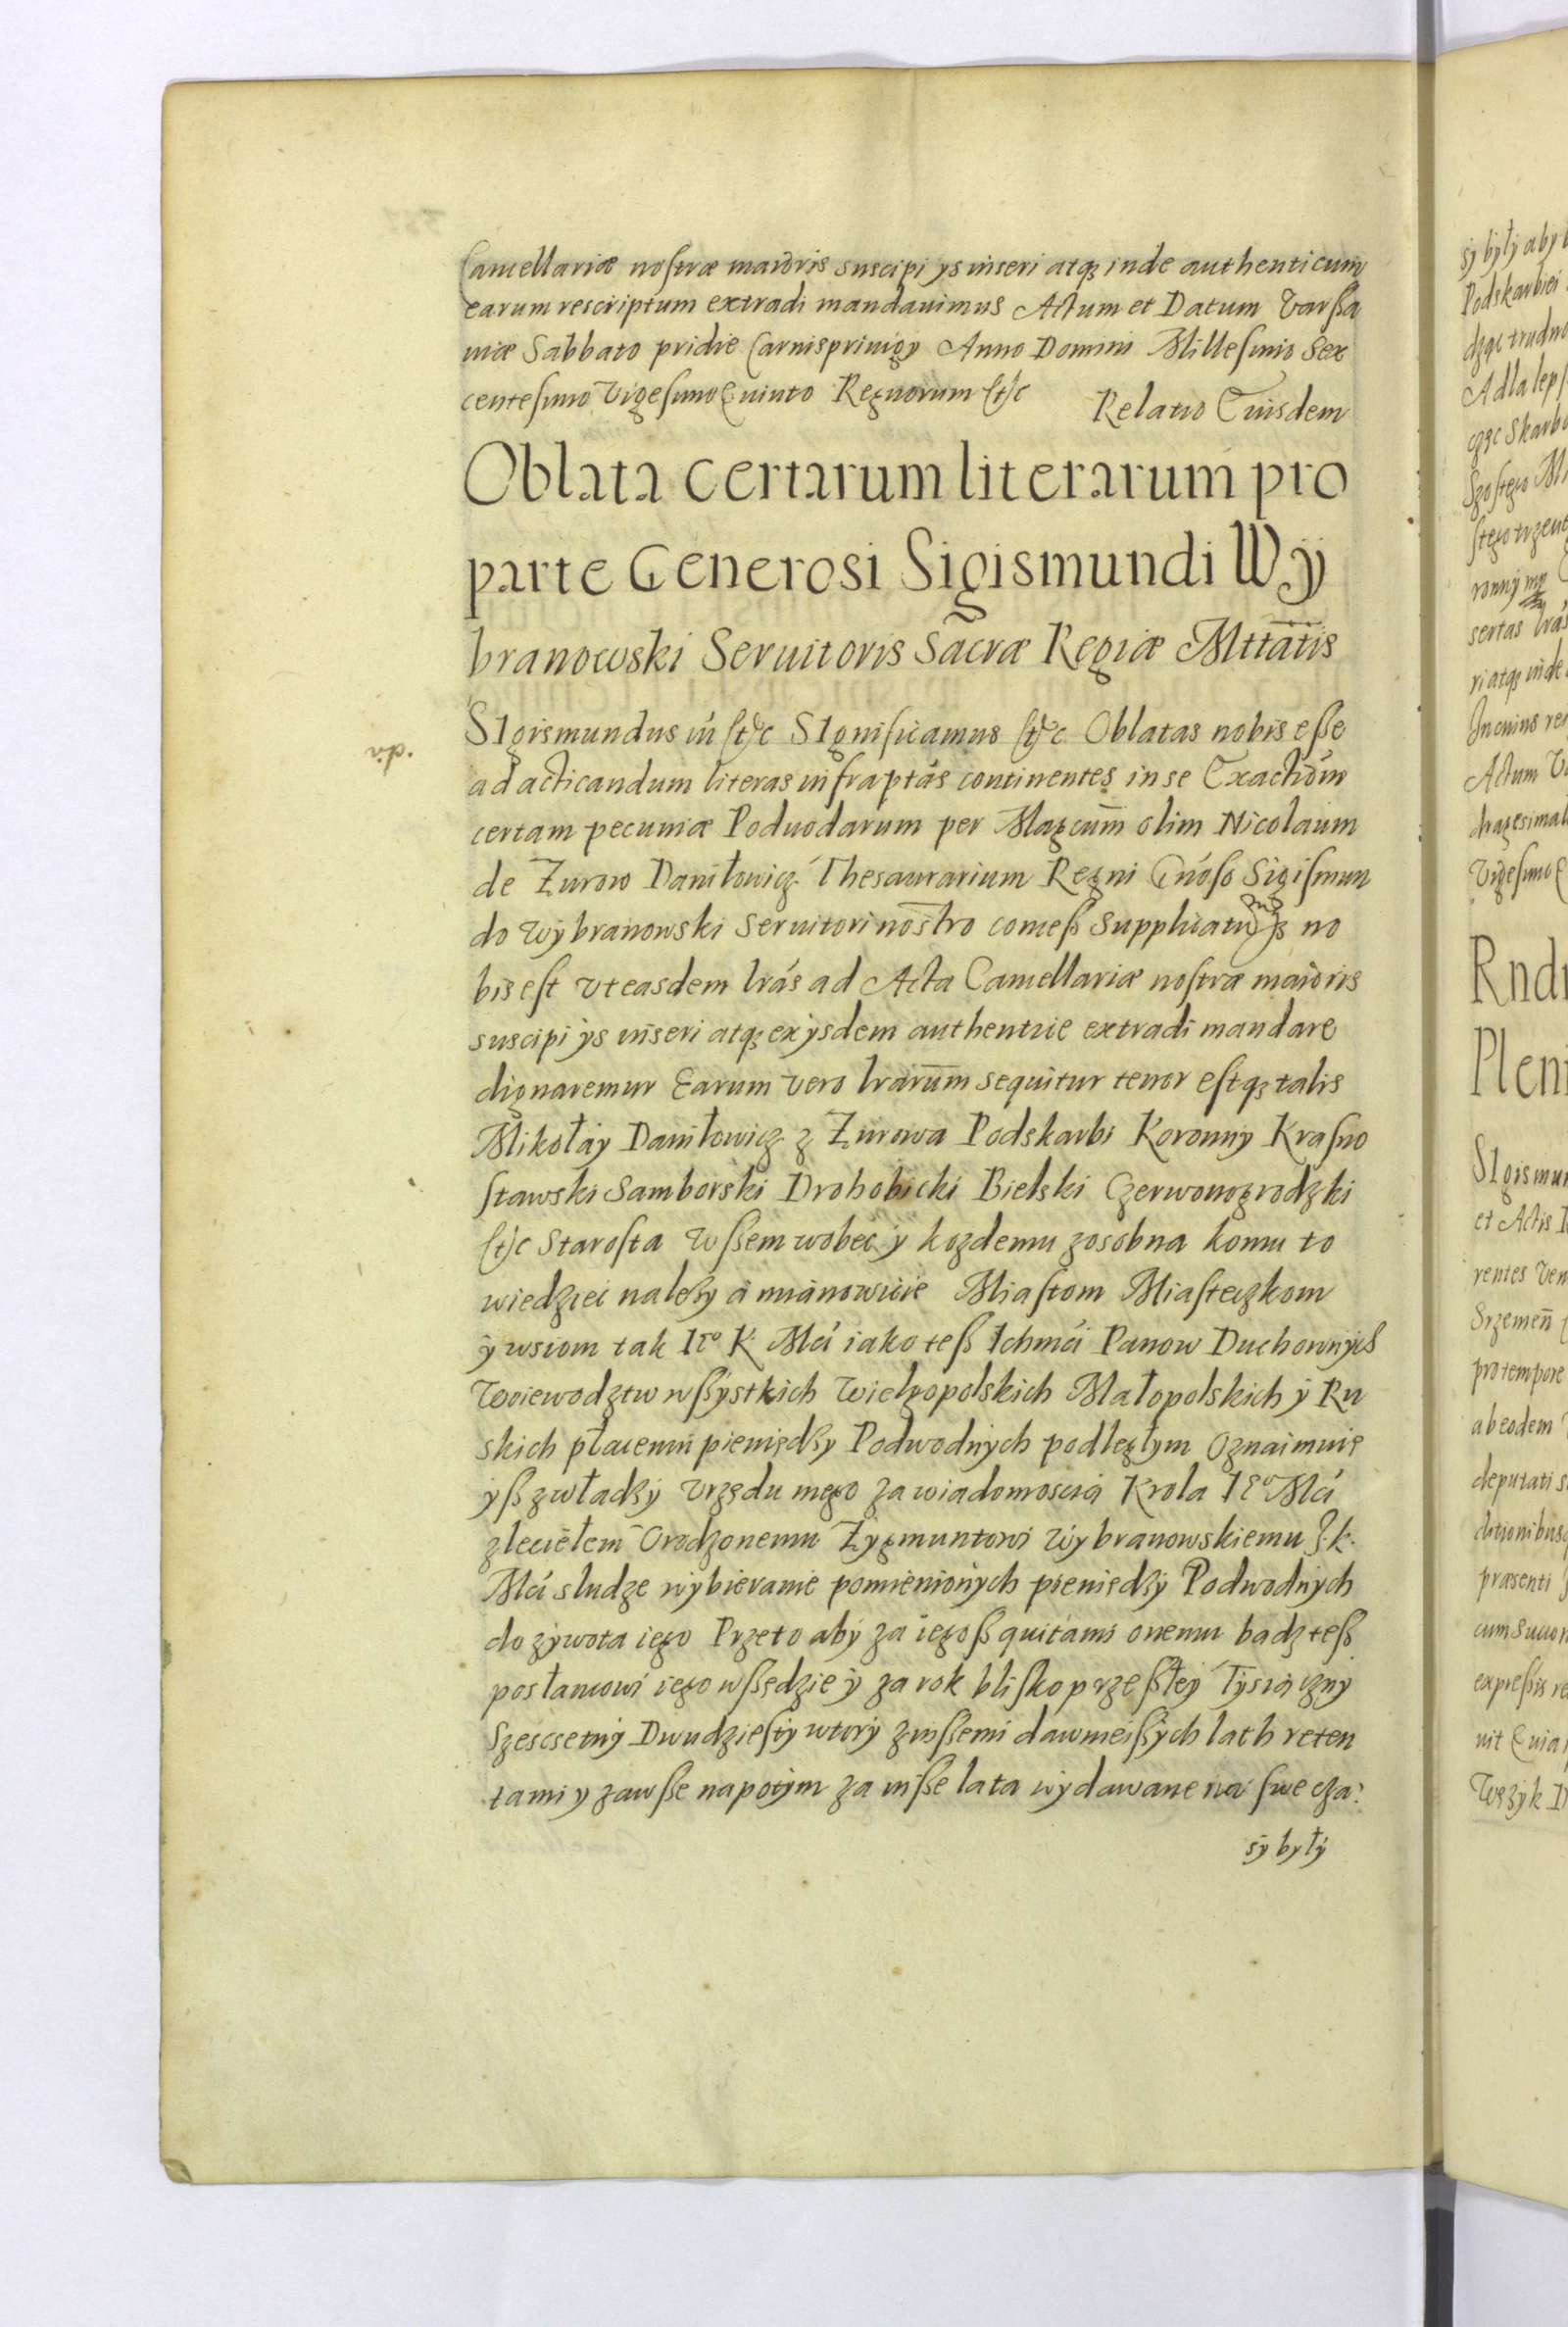 Cancellariæ nostræ maioris suscipi ijs inseri atq inde authenticum
earum rescriptum extradi mandauimus Actum et Datum Varßa
uiæ Sabbato pridie Carnispriuigy Anno Domini Millesimo Sex
centesimo Vigesimo Quinto Regnorum etc Relatio Eiusdem
Oblata certarum literarum pro
parte Generosi Sigismundi Wÿ
branowski Seruitoris Sacræ Regiæ Mttatis
SIgismundus iii etc SIgnificamus etc Oblatas nobis eße
ad acticandum literas infraptás continentes in se Exactiom
certam pecuniæ Poduodarum per Magcum olim Nicolaum
de Zurow Daniłowicz Thesaurarium Regni Gnoso Sigismun
do Wÿbranowski Seruitori nostro conceß Supplicatumq no
bis est vt easdem lrás ad Acta Cancellariæ nostræ maioris
suscipi ÿs inseri atq ex ÿsdem authentice extradi mandare
dignaremur Earum vero lrarum sequitur tenor estq talis
Mikołáy Daniłowicz z Zurowa Podskarbi Koronnÿ Krasno
stawski Samborski Drohobicki Bielski Czerwonogrodzki
etc Starosta Wßem wobec ÿ kozdemu zosobna komu to
wiedziec należÿ á mianowicie Miastom Miasteczkom
ÿ wsiom tak Ieº K. Mći iako teß Ichmći Panow Duchownÿch
Woiewodztw wßÿstkich Wielgopolskich Małopolskich ÿ Ru
skich płaceniu pieniędzÿ Podwodnÿch podległym Oznaimuię
ÿß z władzÿ vrzędu mego za wiadomoscią Krola Ieº Mći
zleciełem Vrodzonemu Zygmuntowi Wÿbranowskiemu J.K.
Mći sludze wÿbieranie pomienionÿch pieniędzÿ Podwodnÿch
do zÿwota iego Przeto abÿ za iegoß quitami onemu badz teß
posłancowi iego wßędzie ÿ za rok blisko przeßłeÿ Tÿsiącznÿ
Szescsetnÿ Dwudziestÿ wtorÿ z inßemi dawnieißÿch lath reten
tami y zawße na potÿm za inße lata wÿdawane na swe cza:
sÿ bÿłÿ